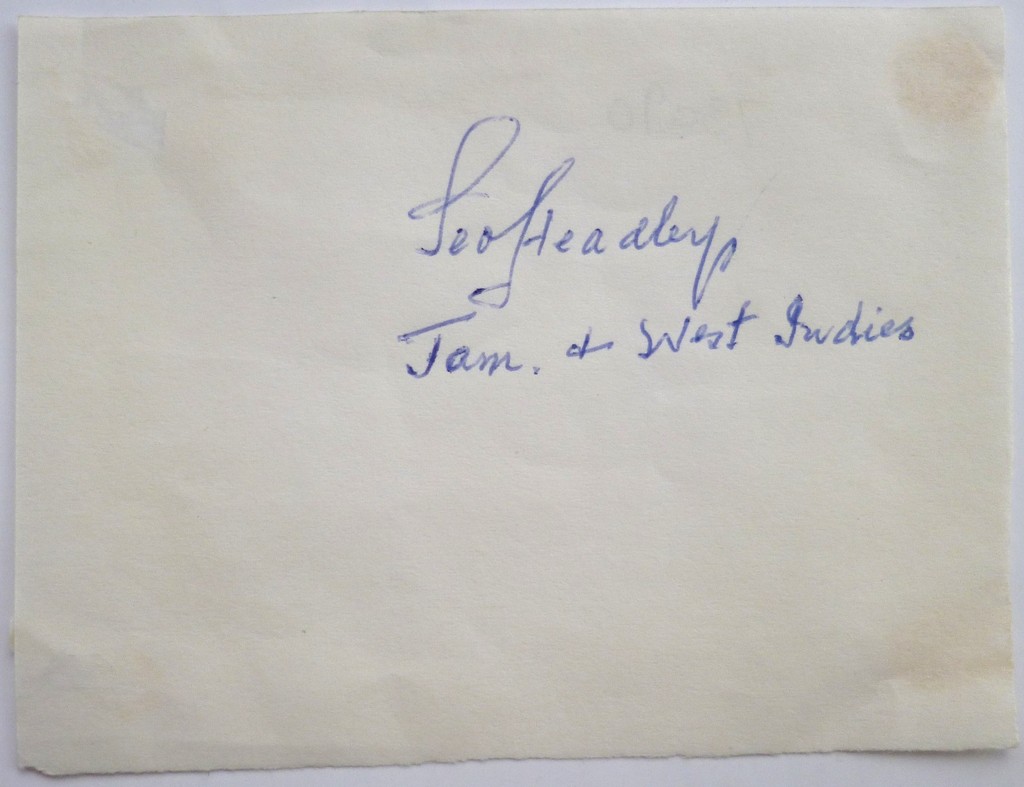 Geo Headley
Jam. & West Indies